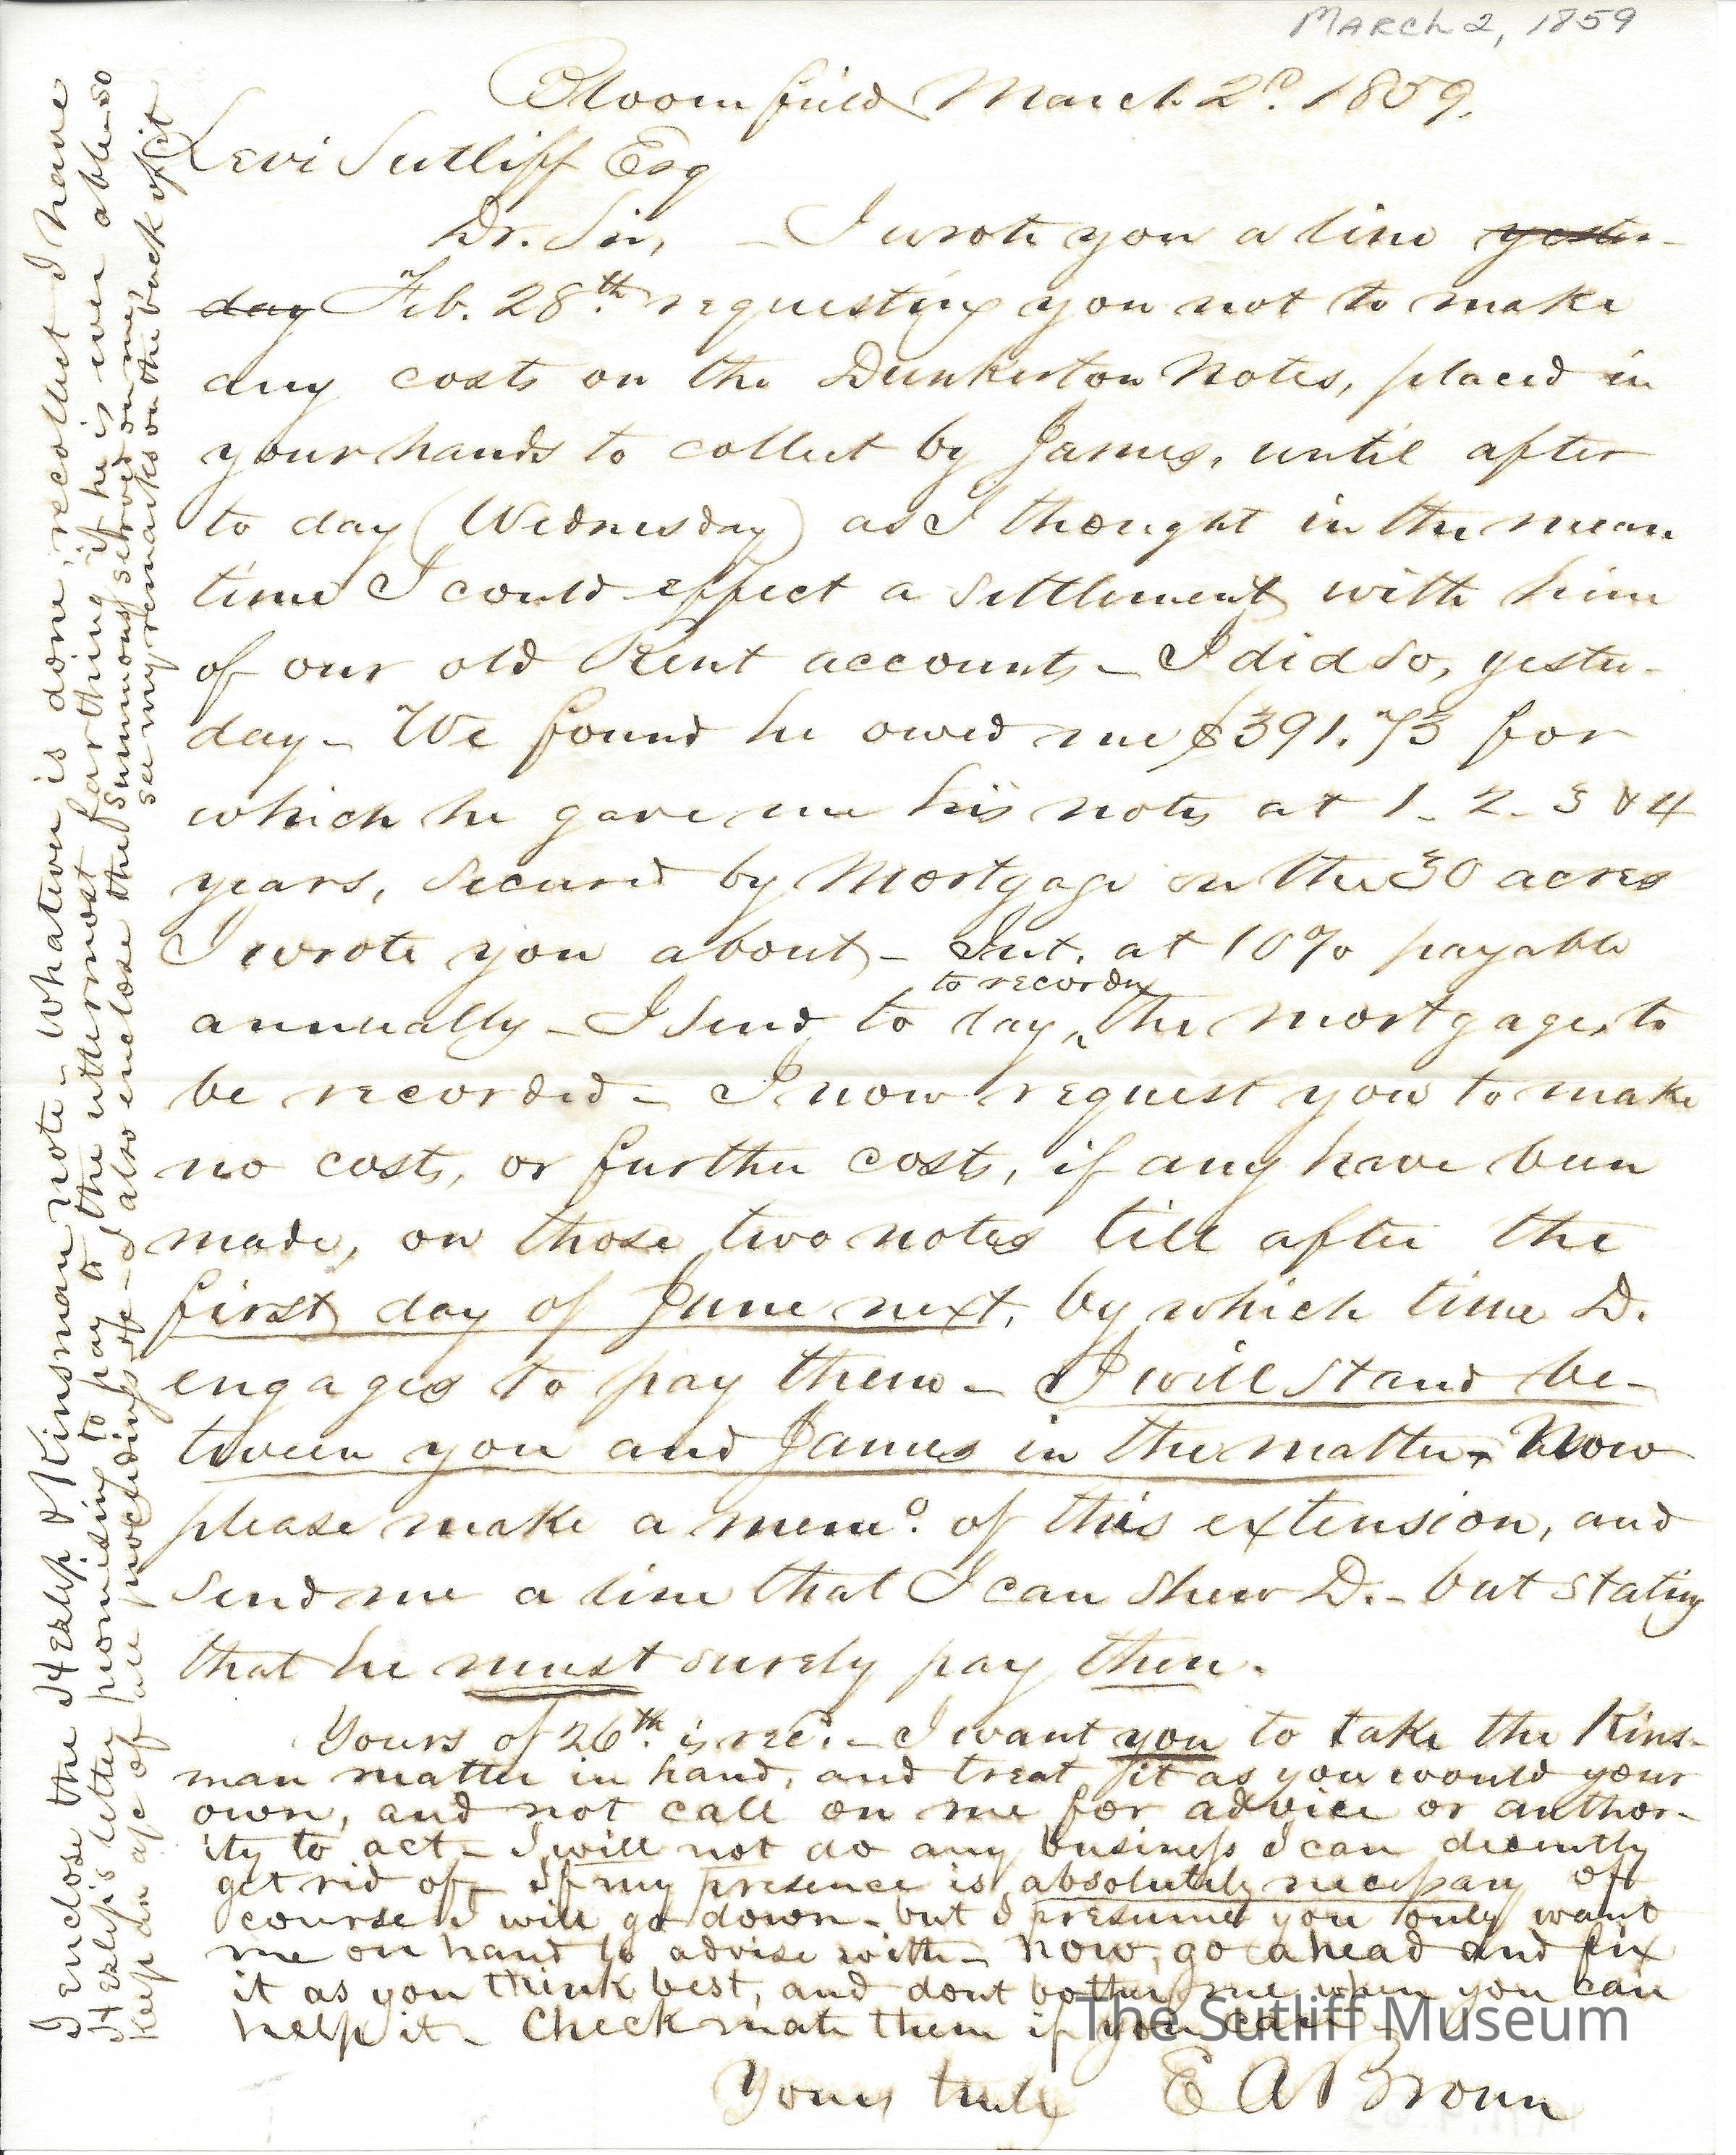 MARCH 2, 1859
Bloomfield March 2d. 1859.
Levi Sutliff Esq
Dr. Sir, – I wrote you a line yester-
day Feb. 28th. requesting you not to make
any costs on the Dunkerton Notes, placed in
your hands to collect by James, until after
to day (Wednesday) as I thought in the mean
time I could effect a settlement with him
of our old Rent accounts – I did so, yester-
day – We found he owed me $391.73 for
which he gave me his notes at 1 - 2 - 3 & 4
years, secured by Mortgage on the 30 acres
I wrote you about – Int. at 10% payable
to recorder
annually – I send to day, the mortgage, to
be recorded – I now request you to make
no costs, or further costs, if any have been
made, on those two notes till after the
first day of June next, by which time D.
engages to pay them – I will stand be-
tween you and James in the matter. Now
please make a memo. of this extension, and
send me a line that I can shew D. – but stating
that he must surely pay then.
Yours of 26th. is rec'. – I want you to take the Kins-
man matter in hand, and treat it as you would your
own, and not call on me for advice or author-
ity to act – I will not do any business I can decently
get rid of – If my presence is absolutely necessary of
course I will go down – but I presume you only want
me on hand to advise with – Now, go ahead and fix
it as you think best, and dont bother me when you can
help it – Checkmate them if you can –
Yours truly E A Brown
I enclose the Hezlip & Kinsman note – whatever is done, recollect I have
Hezlip's letter promising to pay to the uttermost farthing if he is ever able so
keep an a/c of all proceedings – I also enclose the summons served on me
see my remarks on the back of it
The Sutliff Museum